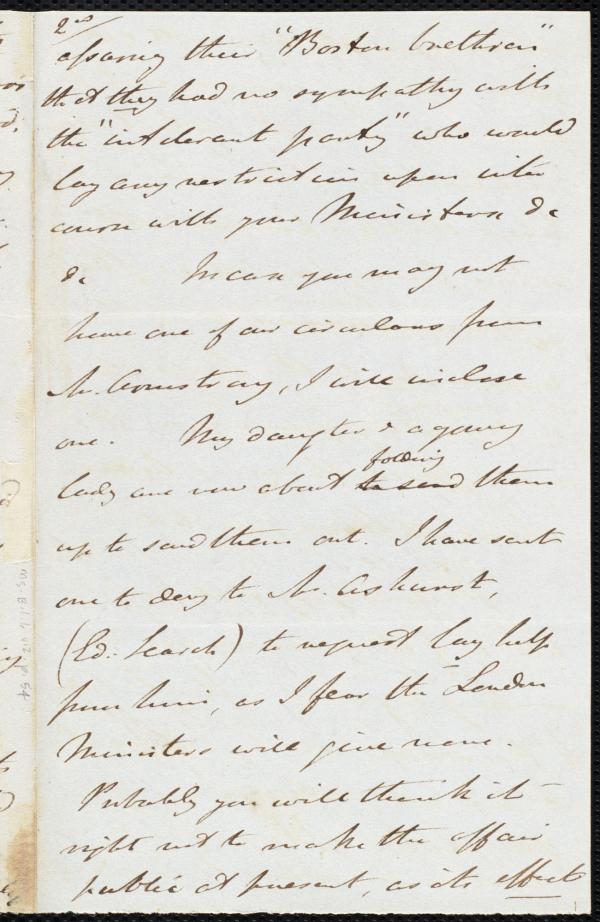 2nd/
assuring their "Boston brethren"
that they had no sympathy with
the "intolerant party" who would
lay any restrictions upon inter
course with your Ministers &c
&c In case you may not
have one of our circulars from
Mr. Armstrong, I will inclose
one. My daughter & a young
lady are now about to send folding them
up to send them out. I have sent
one to day to Mr. Ashurst,
(Ed. Search) to request lay help
from him, as I fear the London
Ministers will give none.
Probably you will think it
right not to make the affair
public at present, as its effects
Ms B.1.6 v.2 p.54